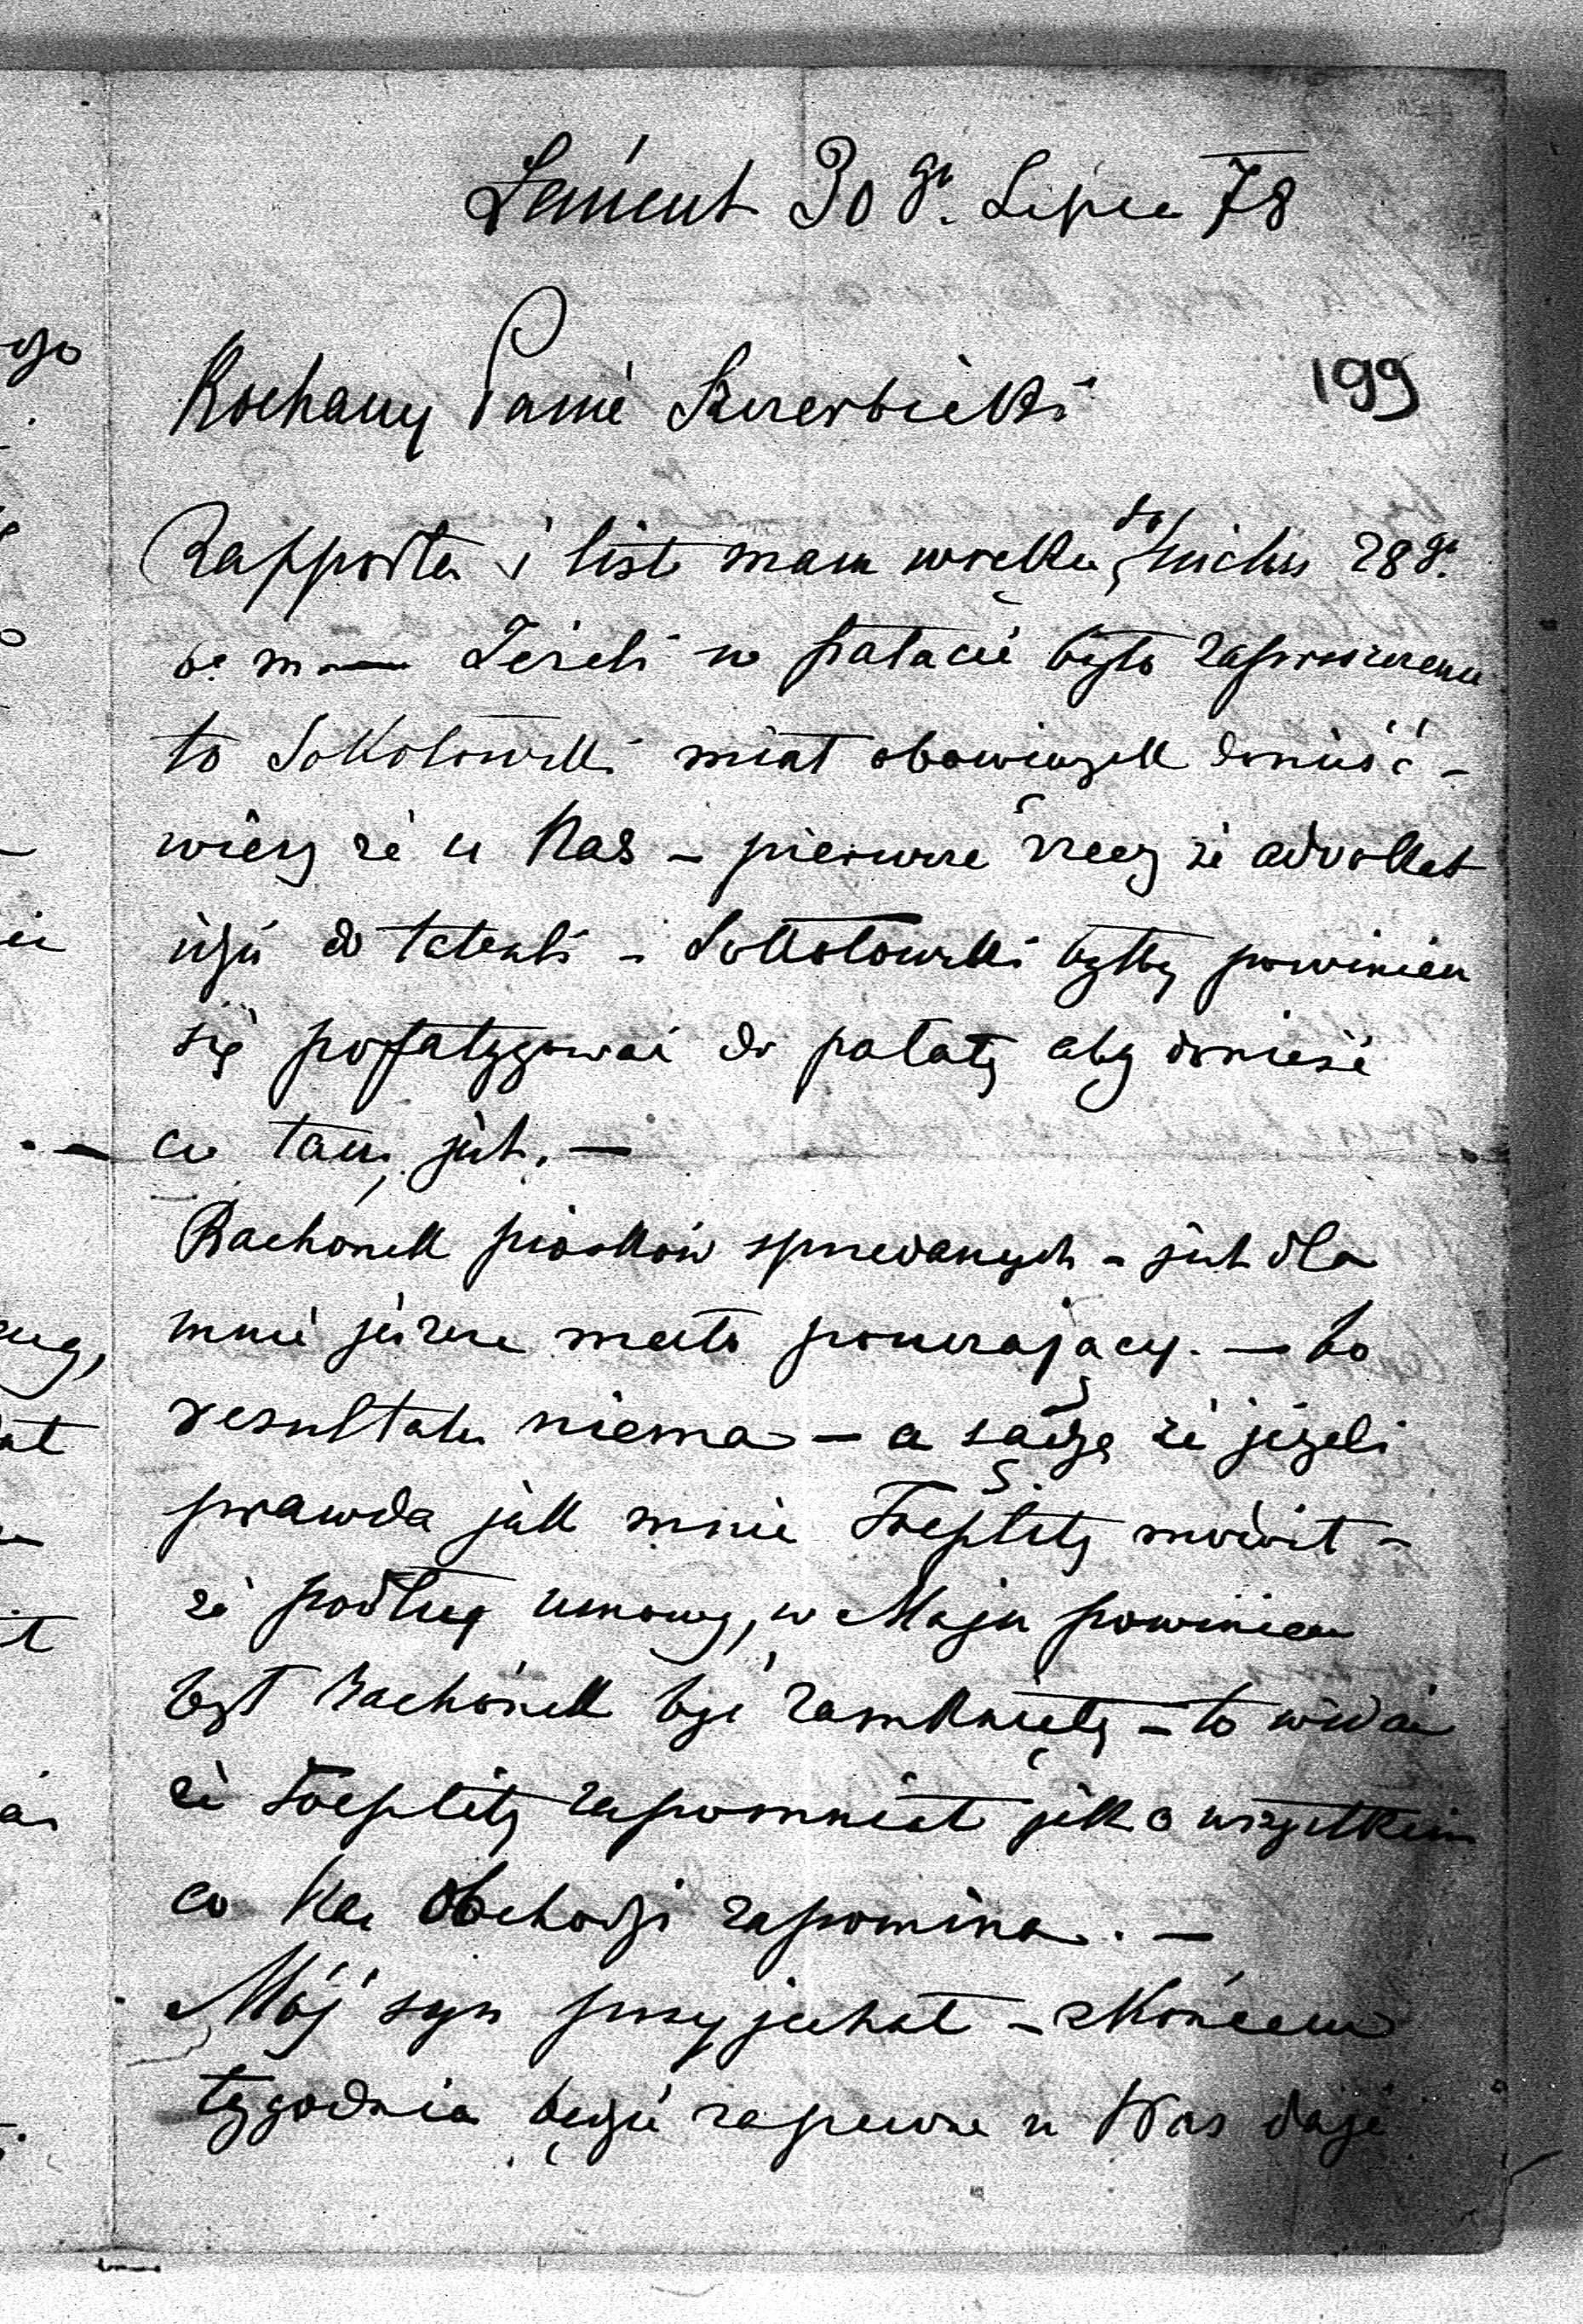 Łańcut 30go. Lipca 78
199
Kochany Panie Szczerbicki
Rapporta i list mam w ręku do 28go.
b. m — Jeżeli w pałacu było zaproszenie
to Sokołowski miał obowiązek donieść –
wiesz że u Nas – pierwsze rzecz że advokat
idzie do – Sokołowski byłby powinien
się pofatygować do pałaty aby donieść
co tam jest. —
Rachónek piasków sprzedanych – jest dla
mnie jeszcze mało pouczający. — bo
resultatu niema – a sądzę że jeżeli
prawda jak mnie Toeplitz mówił –
że podług umowy, w Maju powinien
był Rachónek być zamknięty – to widać
że Toeplitz zapomniał jak o wszystkiem
co Nas obchodzi zapomina. —
Mój syn przyjechał – z Końcem
tygodnia będzie zapewne u Was daję
ego